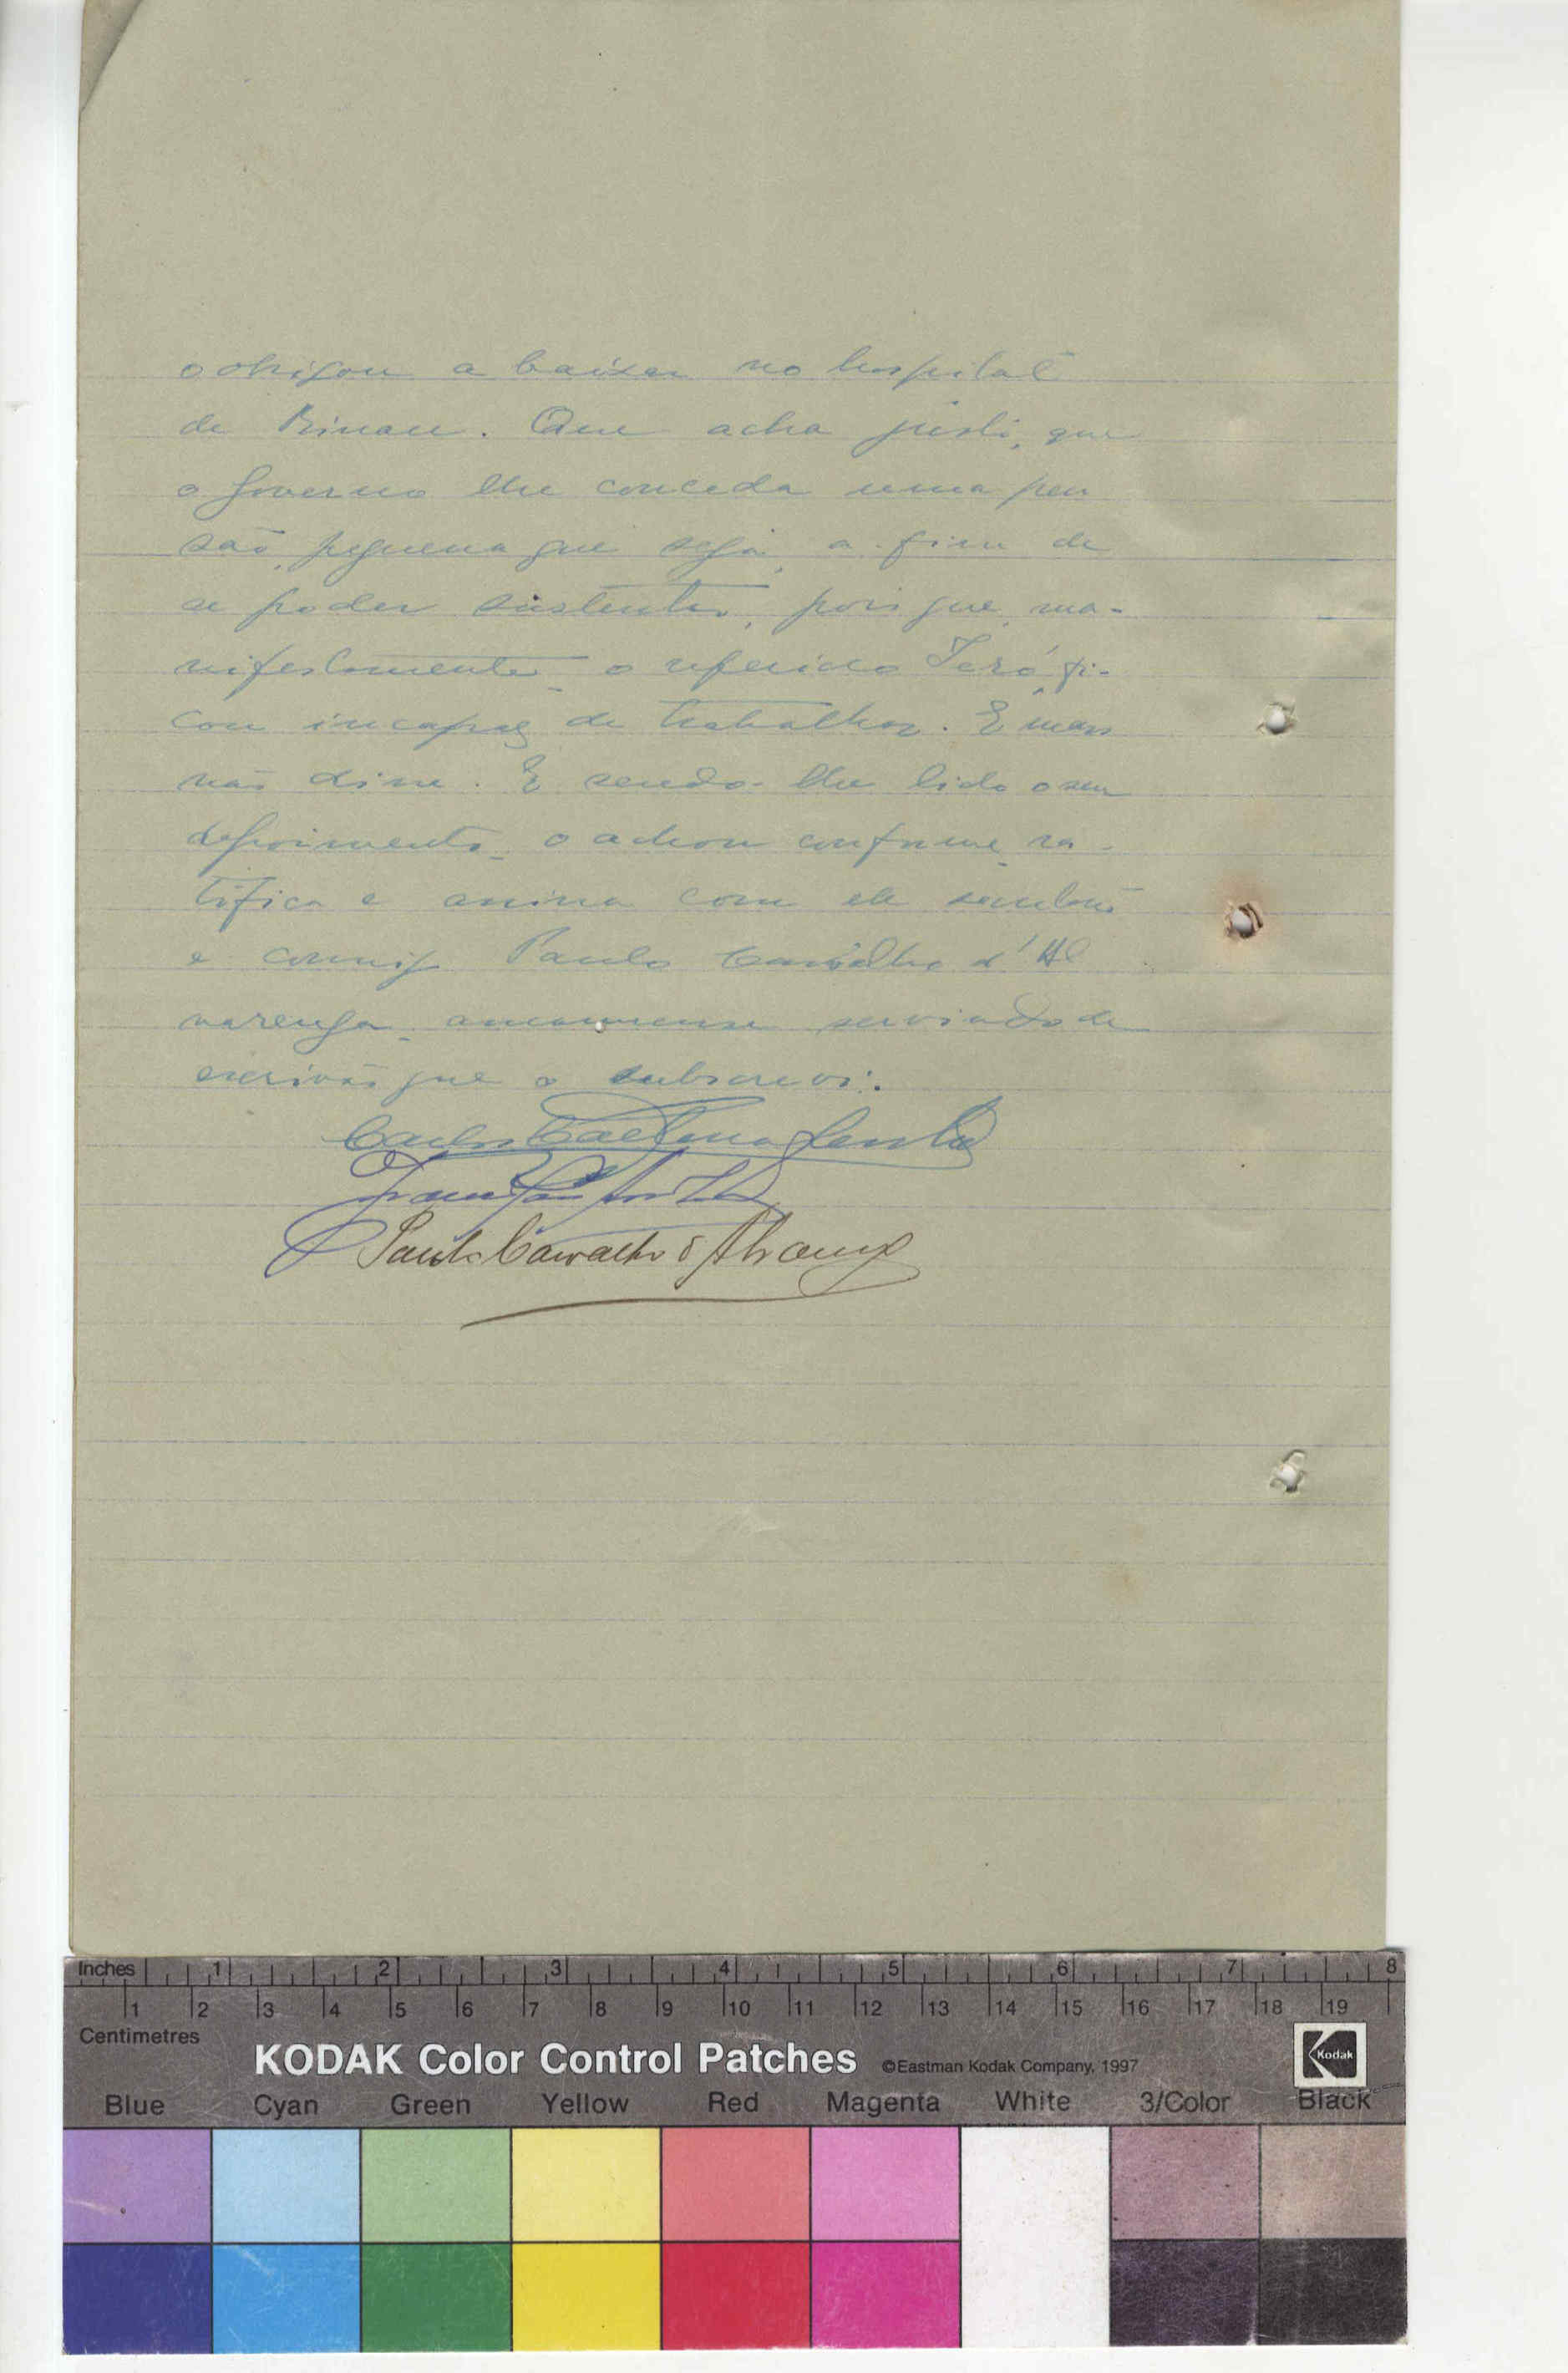 o obrigou a baixar no hospital
de Pinau. Que acha justo, que
o governo lhe conceda uma pen
são, pequena que seja, a fim de
se poder sustentar, pois que, ma-
nifestamente, o referido Teró, fi-
cou incapaz de trabalhar. E mais
não disse. E sendo-lhe lido o seu
depoimento, o achou conforme, ra-
tifica e assina com ele
e comigo Paulo Carvalho d'Al
varenga, amanuense servindo de
escrivão que o subscrevi.
Carlos Caetano
Paulo Carvalho d'Alvarenga
Inches 1 2 3 4 5 6 7 8
1 2 3 4 5 6 7 8 9 10 11 12 13 14 15 16 17 18 19
Centimetres
KODAK Color Control Patches ©Eastman Kodak Company, 1997 Kodak
Blue Cyan Green Yellow Red Magenta White 3/Color Black